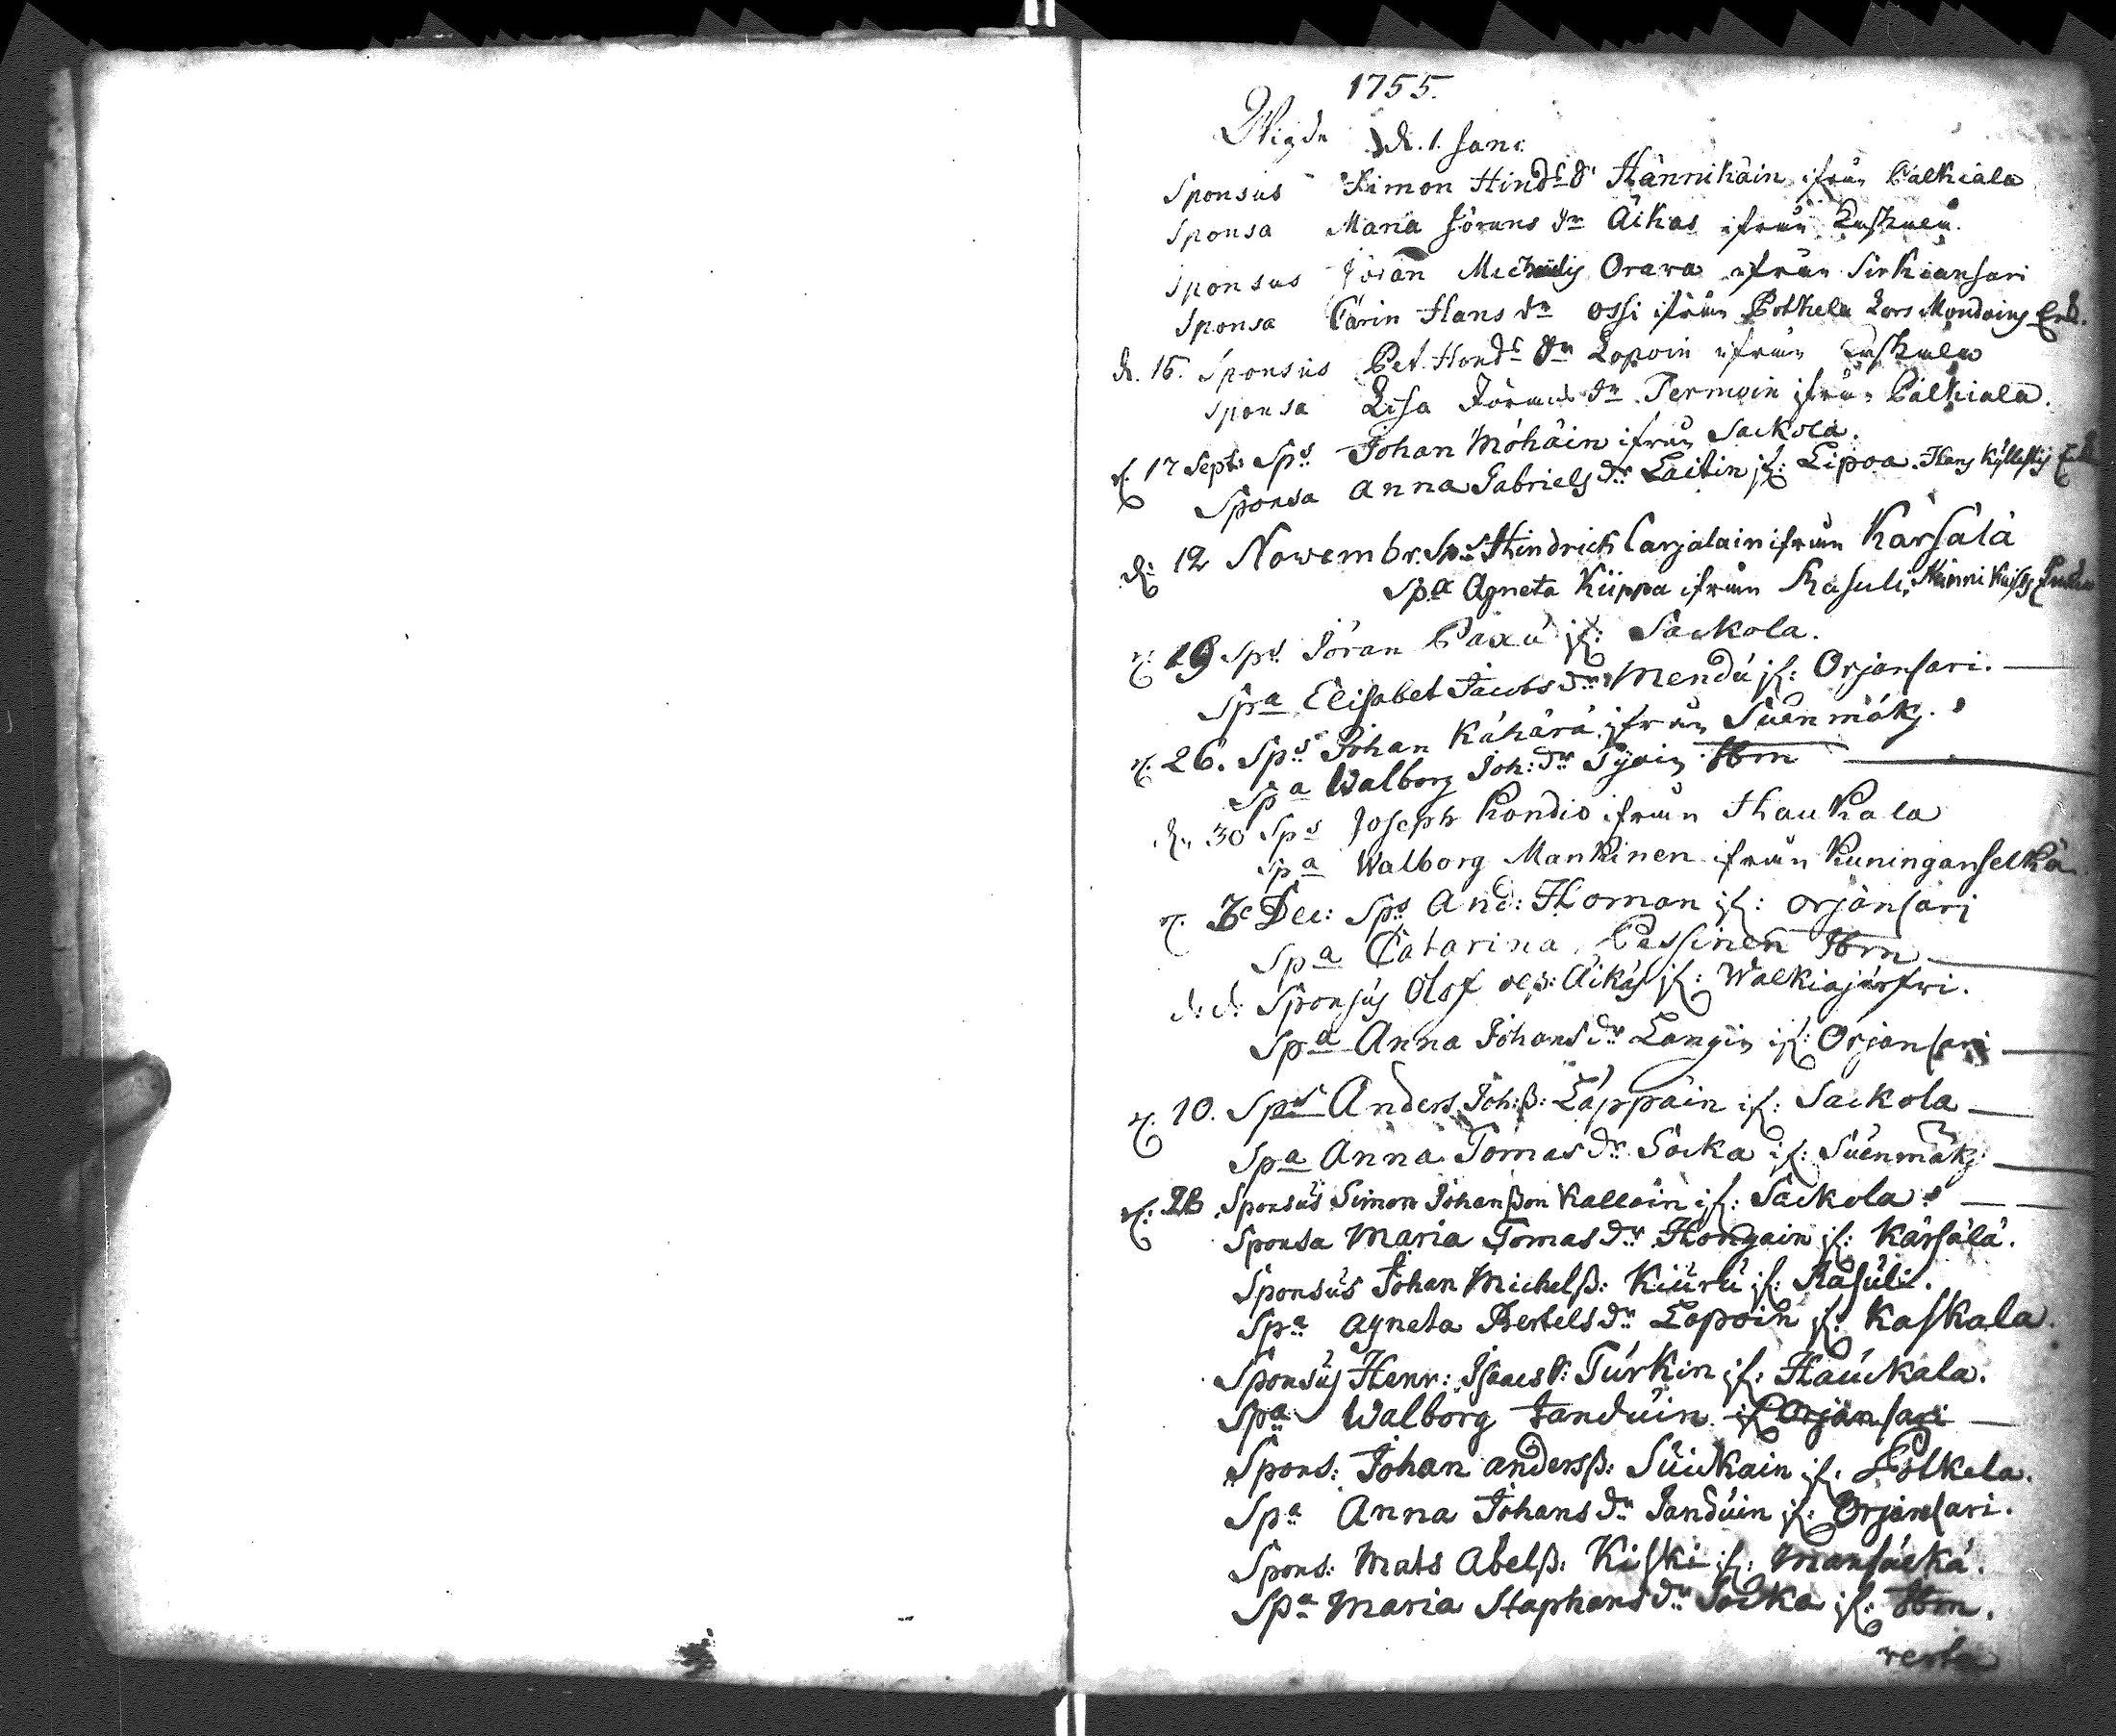 1755.
Wigde d. 1. Jan:
Sponsus Simon Hind: S: Hännikäin ifrån Pälkiälä
Sponsa Maria Jörans dr Äikäs ifrån Kaskala.
Sponsus Jöran Michaelis Orawa ifrån Sirkiänsari
Sponsa Carin Hans dr Ossi ifrån Potkela Lars Mondoins Enk.
d. 16. Sponsus Pet. Hend: Sn Lopoin ifrån Kaskala
Sponsa Lisa Jörans dr Termoin ifrån Pälkiälä.
d. 17 Sept: Sps Johan Möhäin ifrån Sackola.
Sponsa Anna Gabriels dr Laitin if: Lipoa. Hans
d: 12 Nowembr. Sps Hindrich Carjalain ifrån Kärsälä
Spa Agneta Kiippa ifrån Rasuli,
d. 19 Sps Jöran Paxu if: Sackola.
Spa Elisabet Jacobs dr Mendu if: Orjansari.
d. 26. Sps Johan Kähärä ifrån Suenmäki.
Spa Walborg Joh: dr Tyvin Ibm
d. 30 Sps Joseph Kondio ifrån Haukala
Spa Walborg Mankinen ifrån Kuninganselkä
d. 3 Dec: Sps And: Homan if: Orjansari
Spa Catarina Pessinen Ibm
d: d: Sponsus Olof olß: Äikäs if: Walkiajärfwi.
Spa Anna Johans dr Langin if: Orjansari
d. 10. Sps Anders Joh:ß: Läppäin if: Sackola
Spa Anna Tomas dr Socka if: Suenmäki
d: 28 Sponsus Simon Johanßon Kalloin if: Sackola
Sponsa Maria Tomas dr Hongain if: Kärsälä.
Sponsus Johan Michelß: Kiuru if: Rasuli.
Spa Agneta Bertels dr Lopoin if: Kaskala.
Sponsus Henr: Isaacs S: Turkin if: Hauckala.
Spa Walborg Janduin if Orjansari
Spons: Johan andersß: Suickain if. Potkela.
Spa Anna Johans dr Janduin if: Orjansari.
Spons: Mats Abelß: Kiski if: Mansickä.
Spa Maria Staphans dr Socka if: Ibm.
verte